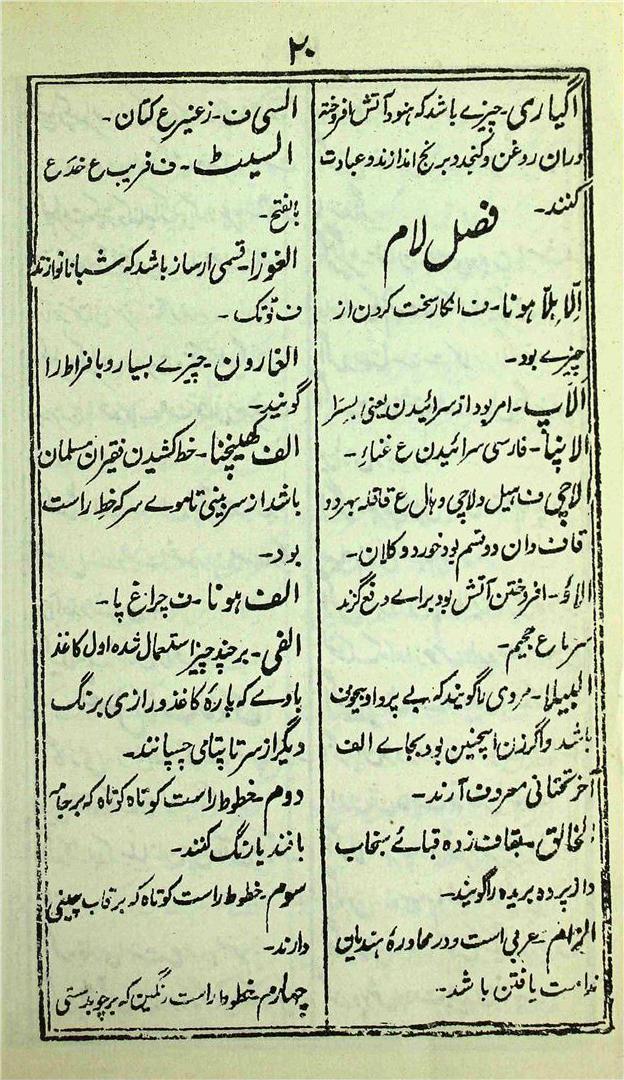 ۲۰
اگیاری۔ چیزے باشد کہ ہنود آتش افروختہ
دران روغن و کنجد و برنج اندازند و عبادت
کنند۔
فصل لام
اِلّا بِلّا ہونا۔ ف انکار سخت کردن از
چیزے بود۔
اَلاپ۔ امر بود از سرائیدن یعنی بسَرا
الاپنا۔ فارسی سرائیدن ع غناء۔
الاچی ف ہیل و لاچی و ہال ع قاقلہ بہر دو
قاف و ان دو قسم بود خورد و کلان۔
الاؤ۔ افروختن آتش بود براے دفع گزند
سرما ع جحیم۔
البیلا۔ مردی را گویند کہ بے پروا و بیچون
باشد و اگر زن اینچنین بود بجاے الف
آخر تحتانی معروف آرند۔
الخالق۔ بقاف زدہ قبائے سنجاب
دار پردہ بریدہ را گویند۔
الزام۔ عربی است و در محاورۂ ہندیان
ندامت یافتن باشد۔
السی ف۔ زغیر ع کتان۔
السیٹ۔ ف فریب ع خدَع
بالفتح۔
الغوزا۔ قسمی از ساز باشد کہ شبانان نوازند
ف تُوتک۔
الغارون۔ چیزے بسیار و بافراط را
گویند۔
الف کھینچنا۔ خط کشیدن فقیران مسلمان
باشد از سر بینی تا موے سر کہ خط راست
بود۔
الف ہونا۔ ف چراغ پا۔
الفی۔ بر چند چیز استعمال شدہ اول کاغذ
بادے کہ پارۂ کاغذ و رازی برنگ
دیگر از سر تا پتامی چسپانند۔
دوم۔ خطوط راست کوتاہ کوتاہ کہ بر جامہ
بافند یا رنگ کنند۔
سوم۔ خطوط راست کوتاہ کہ بر قاب چینی
دارند۔
چہارم۔ خطوط راست رنگین کہ بر چوبدستی